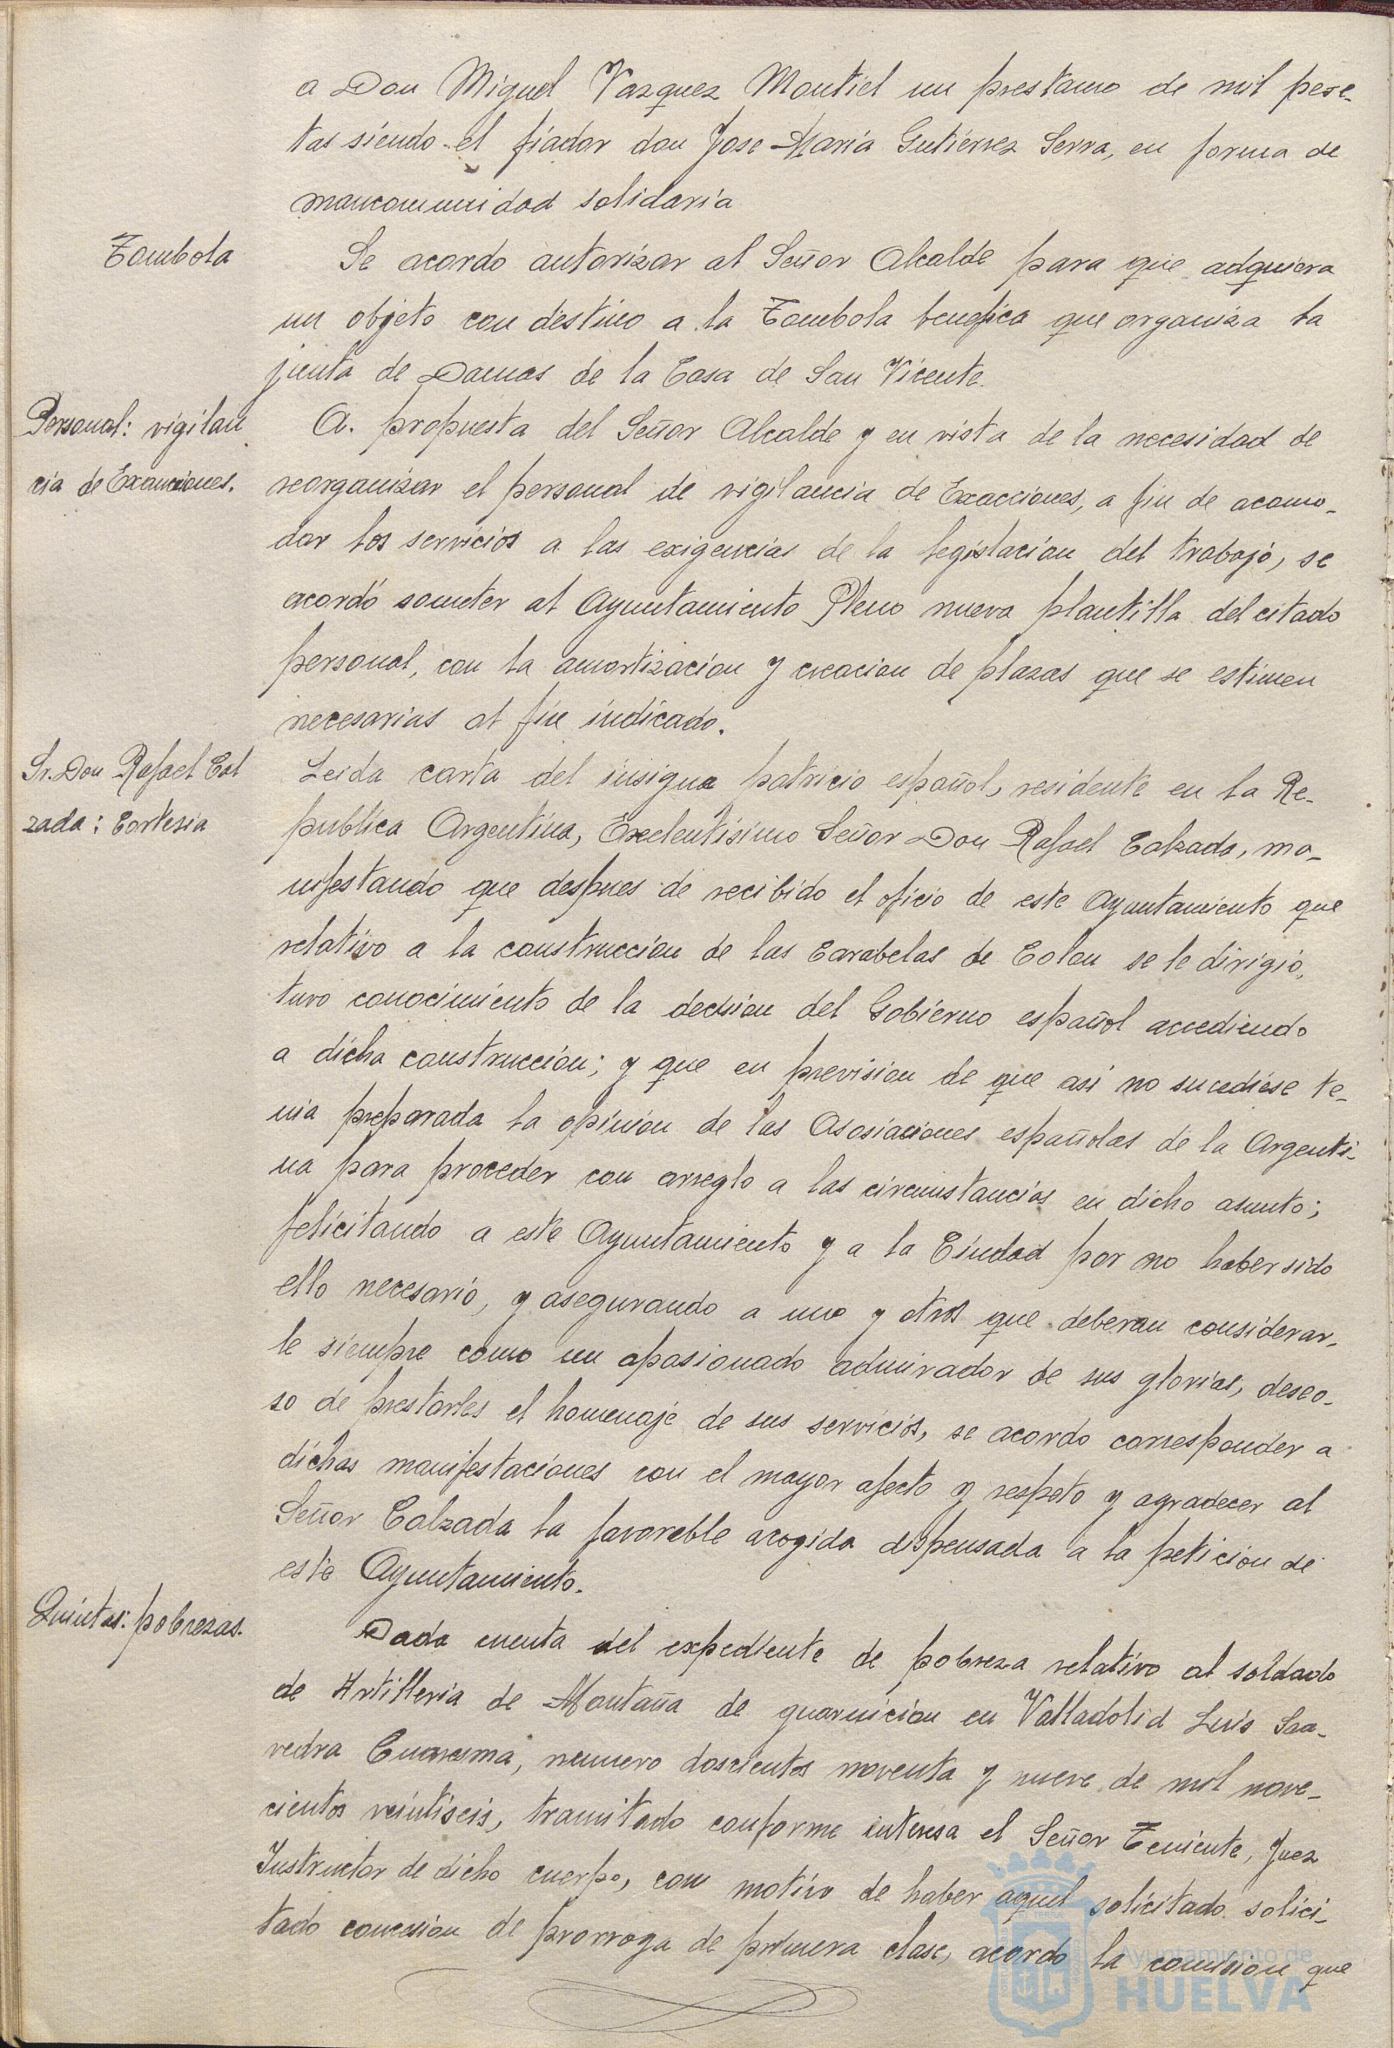 a Don Miguel Vazquez Montiel un prestamo de mil pese-
tas siendo el fiador don Jose Maria Gutierrez Serra, en forma de
mancomunidad solidaria
Tombola
Se acordo autorizar al Señor Alcalde para que adquiera
un objeto con destino a la Tombola benefica que organiza la
junta de Damas de la Casa de San Vicente.
Personal: vigilan
cia de Exacciones.
A. propuesta del Señor Alcalde y en vista de la necesidad de
reorganizar el personal de vigilancia de Exacciones, a fin de acomo-
dar los servicios a las exigencias de la legislacion del trabajo, se
acordó someter al Ayuntamiento Pleno nueva plantilla del citado
personal, con la amortizacion y creacion de plazas que se estimen
necesarias al fin indicado.
Sr. Don Rafael Cal
zada: Cortesia
Leida carta del insigne patricio español, residente en la Re-
publica Argentina, Excelentisimo Señor Don Rafael Calzada, ma-
nifestando que despues de recibido el oficio de este Ayuntamiento que
relativo a la construccion de las Carabelas de Colon se le dirigió,
tuvo conocimiento de la decision del Gobierno español accediendo
a dicha construccion; y que en prevision de que asi no sucediese te-
nia preparada la opinion de las Asosiaciones españolas de la Argenti-
na para proceder con arreglo a las circunstancias en dicho asunto;
felicitando a este Ayuntamiento y a la Ciudad por no haber sido
ello necesario, y asegurando a uno y otros que deberan considerar-
le siempre como un apasionado admirador de sus glorias, deseo-
so de prestarles el homenaje de sus servicios, se acordo corresponder a
dichas manifestaciones con el mayor afecto y respeto y agradecer al
Señor Calzada la favorable acogida dispensada a la peticion de
este Ayuntamiento.
Quintas: pobrezas.
Dada cuenta del expediente de pobreza relativo al soldado
de Artilleria de Montaña de guarnicion en Valladolid Luis Saa-
vedra Cuaresma, numero doscientos noventa y nueve de mil nove-
cientos veintiseis, tramitado conforme interesa el Señor Teniente, Juez
Instructor de dicho cuerpo, con motivo de haber aquel solicitado solici-
tado concesion de prorroga de primera clase, acordo la comision que
Ayuntamiento de
HUELVA